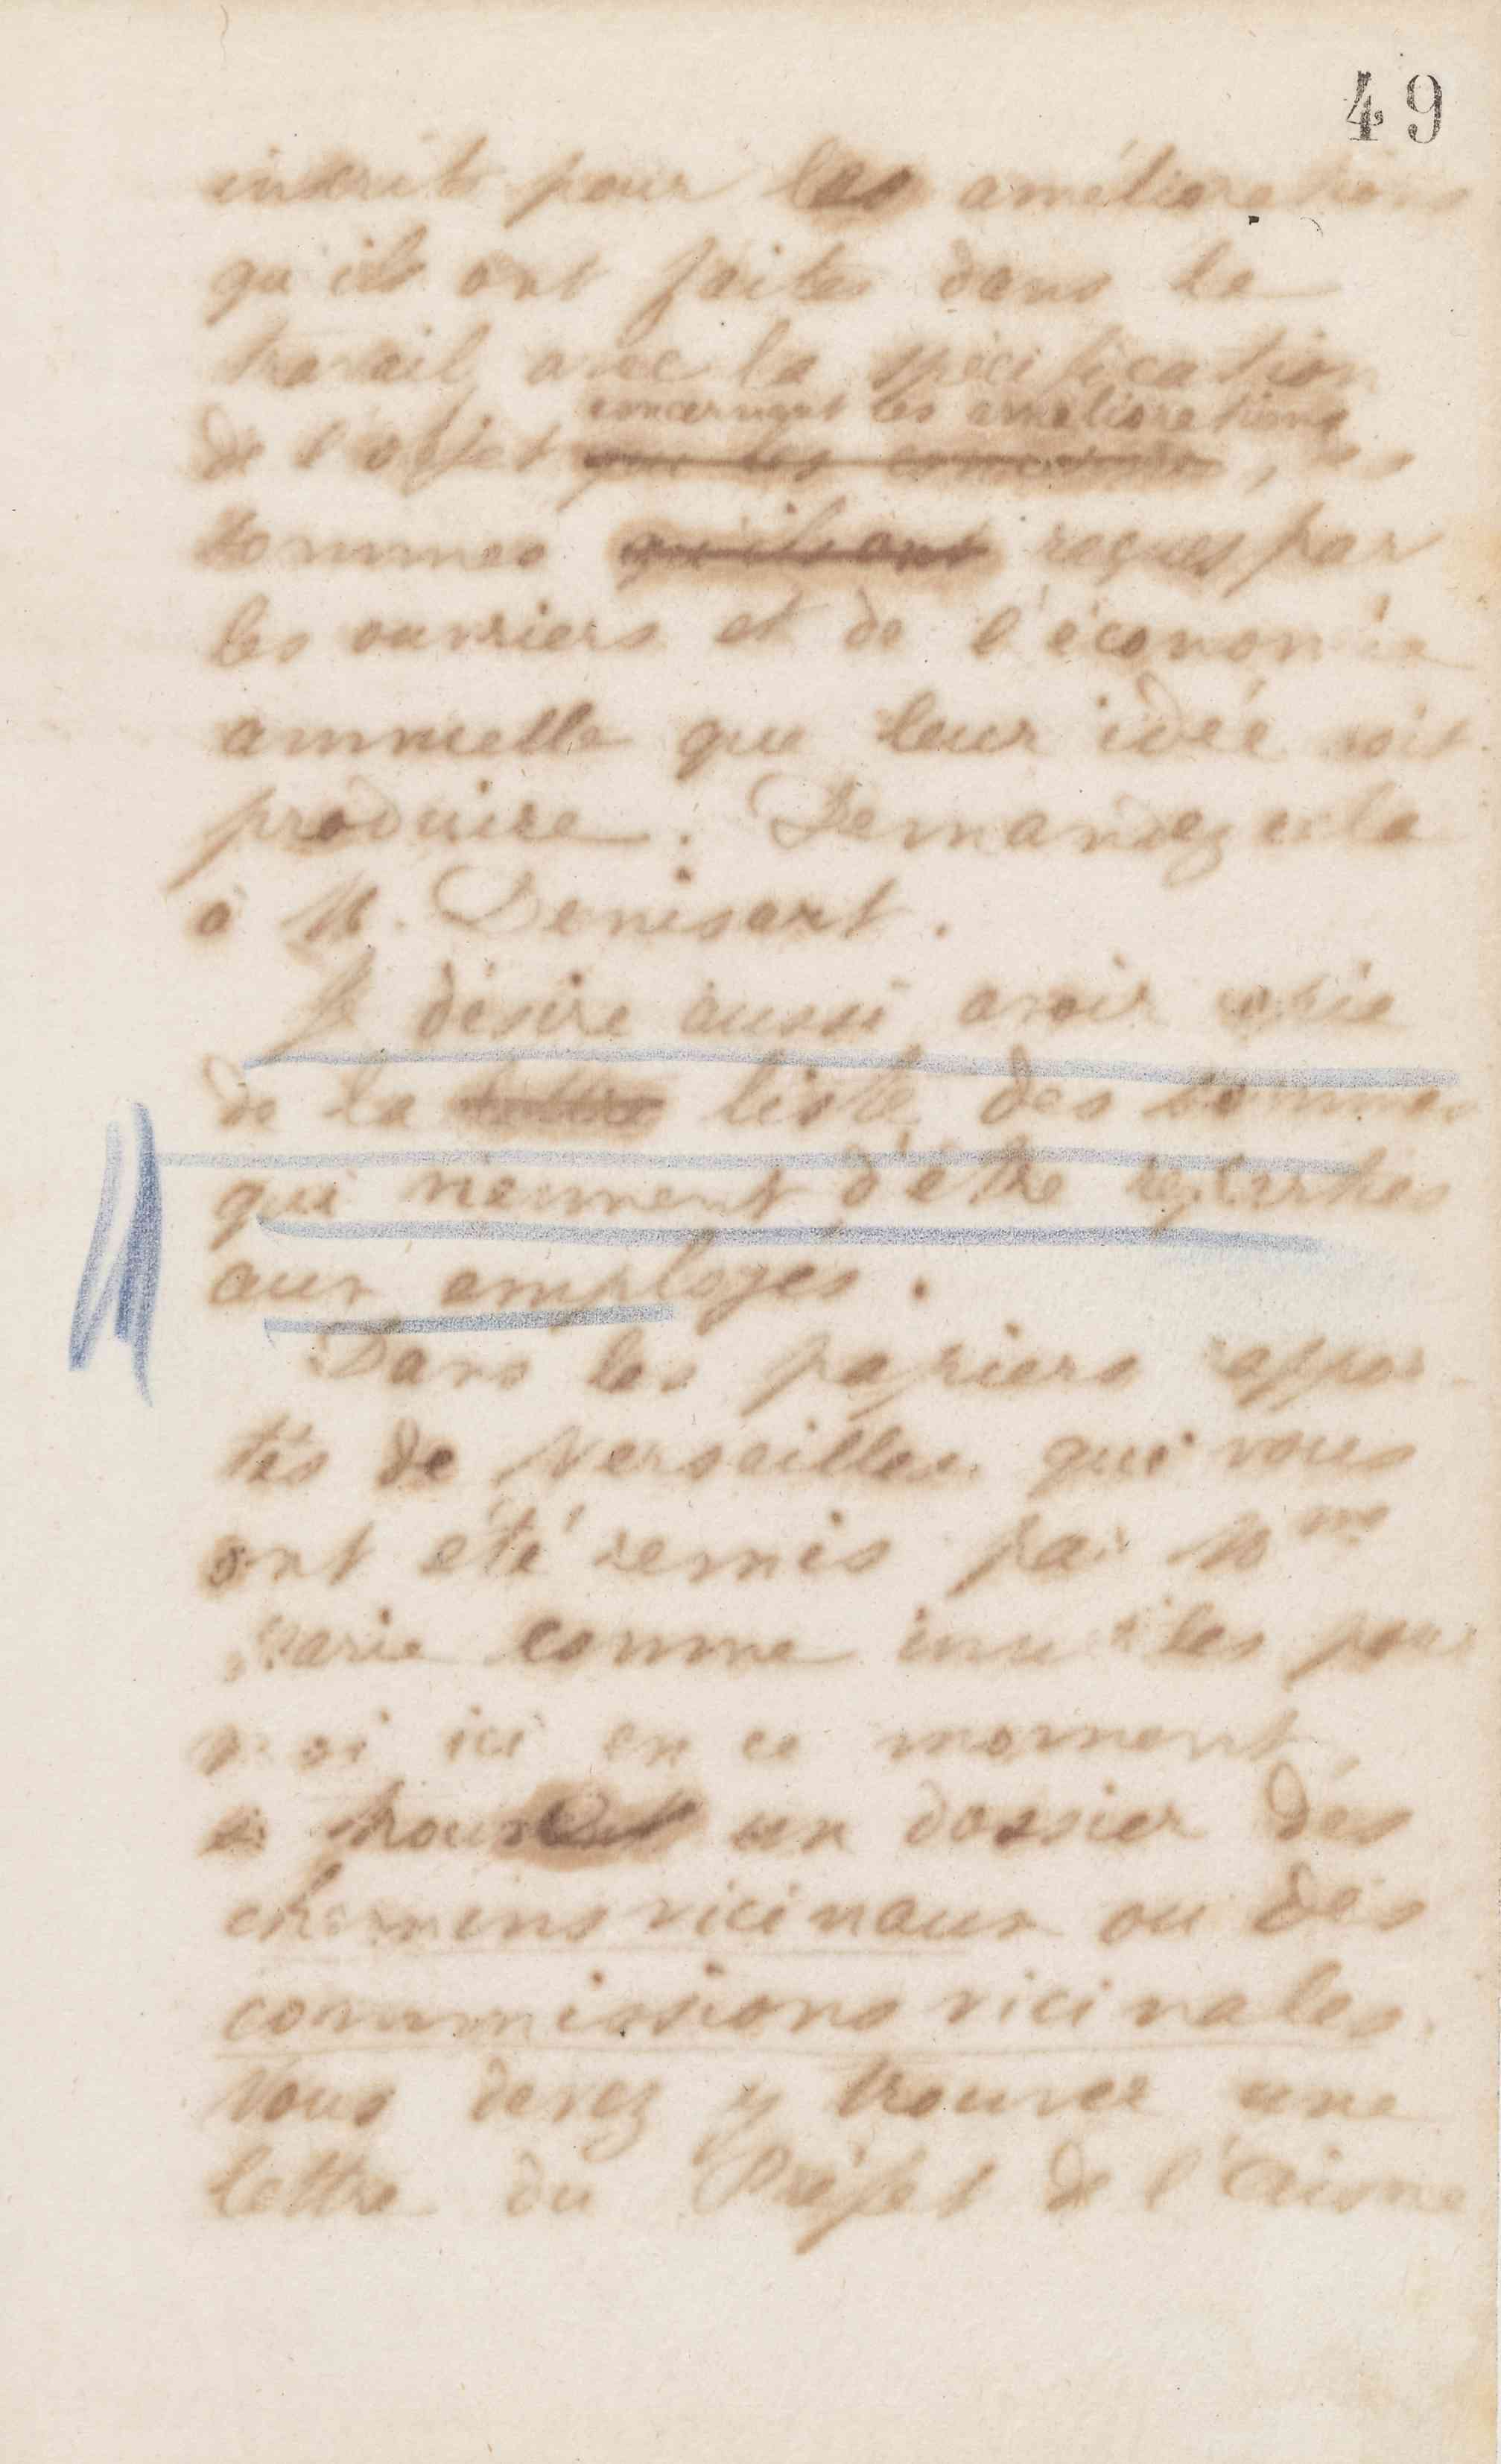 49
inscrits pour les améliorations
qu'ils ont faites dans le
travail avec la spécification
concernant les améliorations
de l'objet que les concerne, les
sommes qu'ils ont reçues par
les ouvriers et de l'économie
annuelle que leur idée doit
produire. Demandez cela
à M. Denisart.
Je désire aussi avoir copie
de la liste des sommes
qui viennent d'être réparties
aux employés.
Dans les papiers appor-
tés de Versailles qui vous
ont été remis par Mme
Marie comme inutiles pour
moi ici en ce moment,
se trouve un dossier des
chemins vicinaux ou des
commissions vicinales.
Vous devez y trouver une
lettre du Préfet de l'Aisne